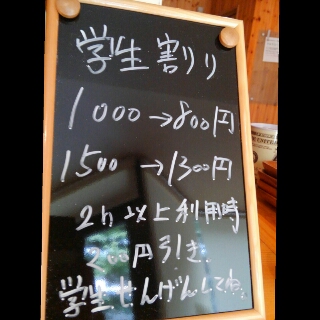 学生割り
1000→800円
1500→1300円
2h以上利用時
200円引き.
学生せんげんしてね